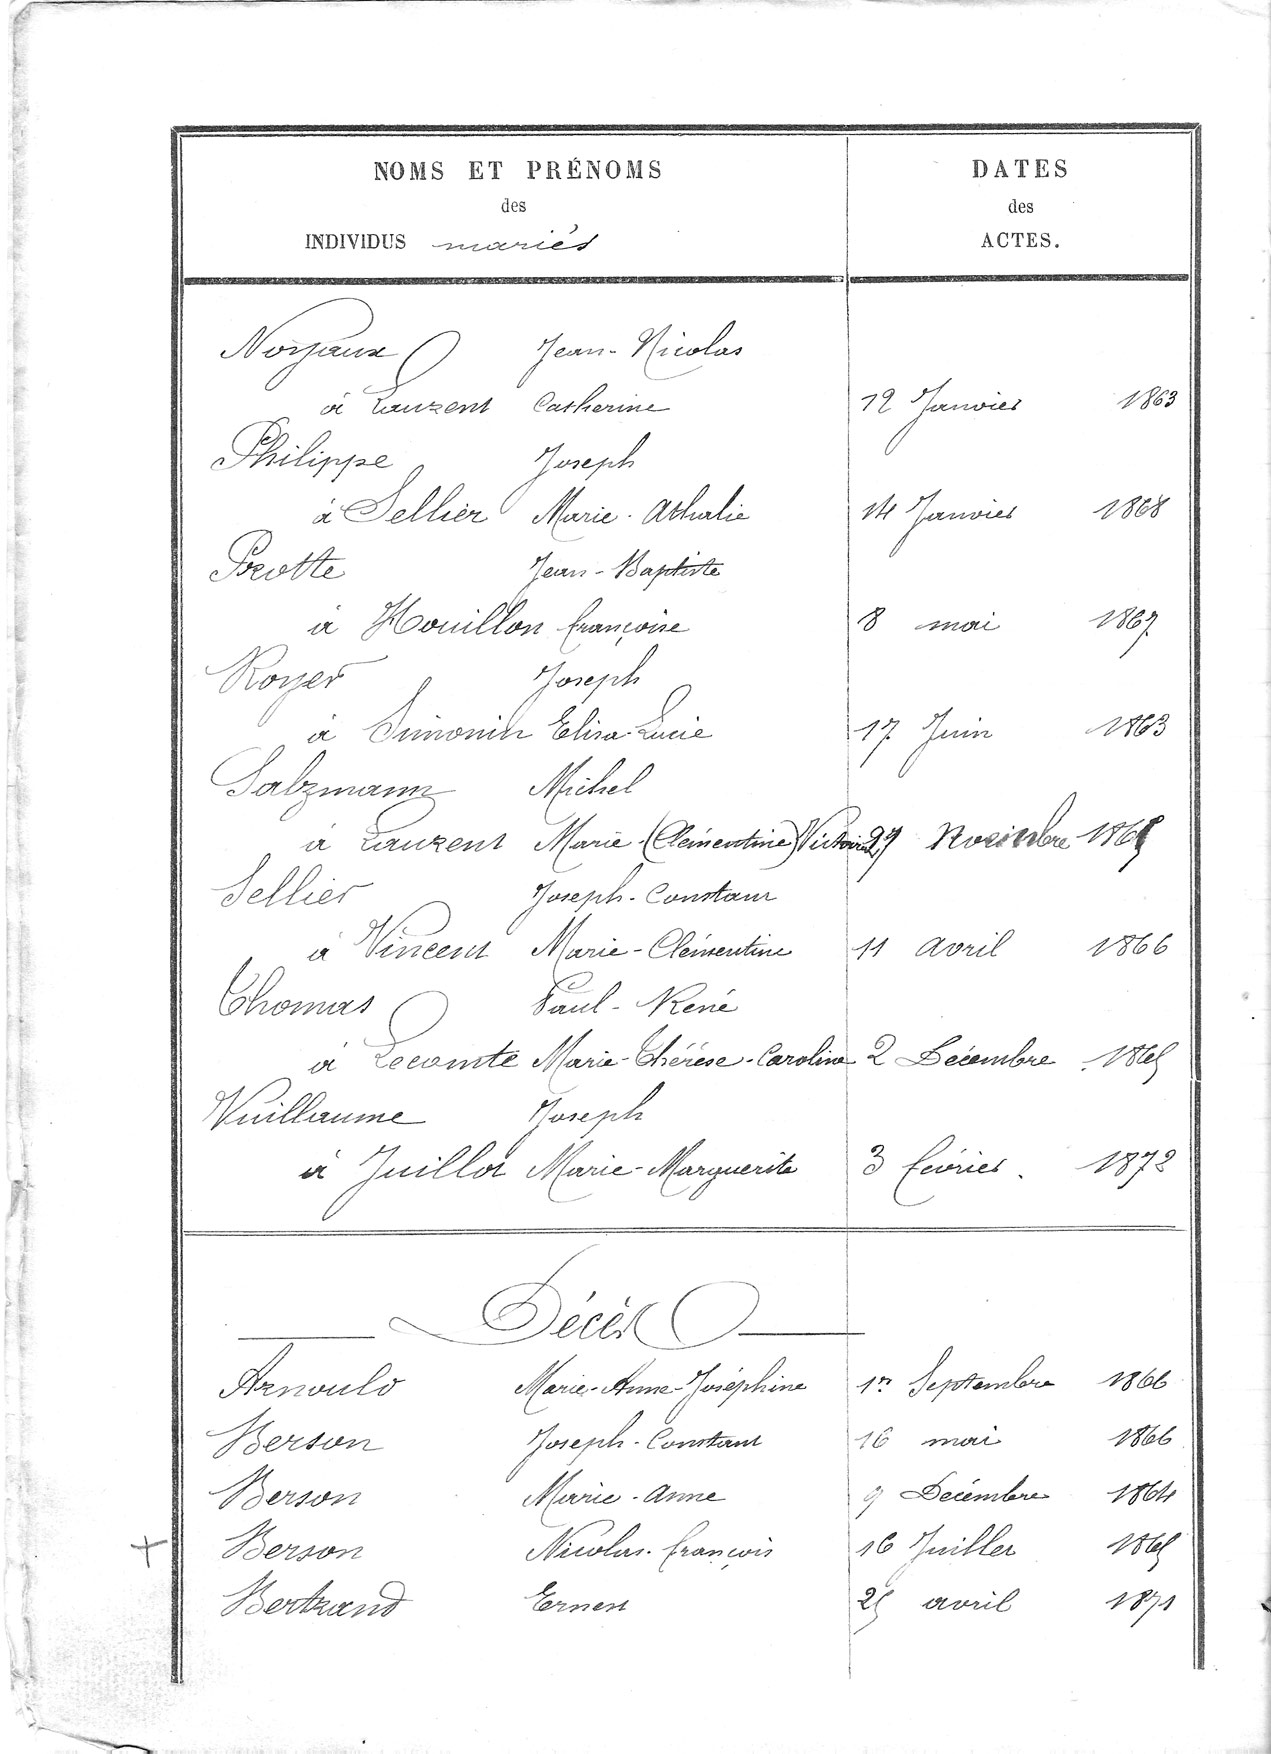 NOMS ET PRÉNOMS DATES
des des
INDIVIDUS mariés ACTES.
Noyaux Jean-Nicolas
à Laurent Catherine 12 Janvier 1863
Philippe Joseph
à Sellier Marie-Athalie 14 Janvier 1868
Protte Jean-Baptiste
à Houillon françoise 8 mai 1867
Royer Joseph
à Simonin Elisa-Lucie 17 Juin 1863
Salzmann Michel
à Laurent Marie-(Clémentine) Victoire 27 Novembre
Sellier Joseph-Constant
à Vincent Marie-Clémentine 11 avril 1866
Thomas Paul-René
à Lecomte Marie-Thérèse-Caroline 2 Décembre 1865
Vuillaume Joseph
à Juillot Marie-Marguerite 3 février 1872
Décès
Arnould Marie-Anne-Joséphine 1er Septembre 1866
Berson Joseph-Constant 16 mai 1866
Berson Marie-Anne 9 Décembre 1864
+ Berson Nicolas-françois 16 Juillet 1865
Bertrand Ernest 25 avril 1871